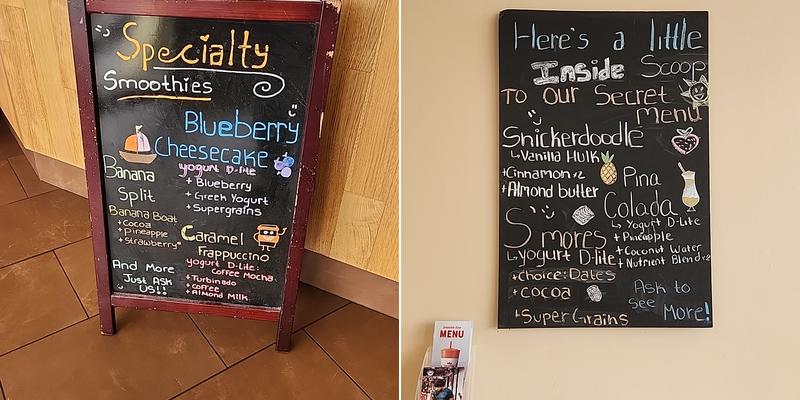 Specialty
Smoothies
Blueberry
Cheesecake
yogurt D-lite
+ Blueberry
+ Greek Yogurt
+ Supergrains
Banana
Split
Banana Boat
+ cocoa
+ Pineapple
+ Strawberry
Caramel
Frappuccino
yogurt D-lite:
coffee Mocha
+ Turbinado
+ coffee
+ Almond Milk
And More
Just Ask
US!!
Here's a little
Inside Scoop
To our Secret
menu
Snickerdoodle
Vanilla Hulk
+Cinnamon x2
+Almond butter
Pina
Colada
Yogurt D-Lite
+ Pineapple
+ Coconut Water
+ Nutrient Blend x2
S'mores
yogurt D-lite
+choice: Dates
+ cocoa
+Super Grains
Ask to
see More!
MENU